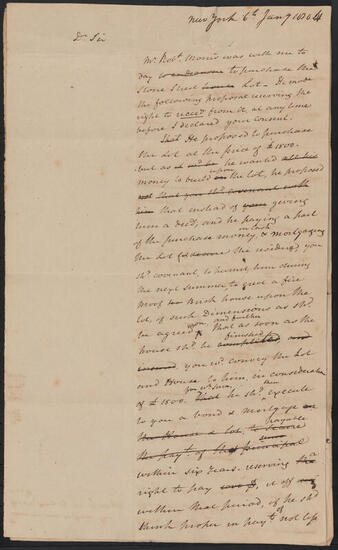 New York 6th Jany 1804
Dr Sir
Mr Robt. Morris was with me to
day to endeavour to purchase the
Stone Street house Lot. He made
the following proposal reserving the
right to recede from it, at any time
before I declared your consent.
That He proposed to purchase
the Lot at the price of £1500.
but as he wanted
money to build upon the Lot, he proposed
not that you shd. covenant with
him that instead of your giving
him a deed, and he paying a part
of the purchase money in cash, & mortgaging
the Lot to secure the residue, you
shd. covenant, to permit him during
the next summer to erect a fire
proof Brick house upon the
lot, of such Dimensions as shd.
be agreed upon, and further that as soon as the
house shd. be compleated finished and
you wd. convey the Lot
and House to him, in consideration
of £1500. for wh. sum, That he shd. then execute
to you a bond & Mortgage on
the House & Lot, to secure payable
the payt. of that principal sum
within six years. reserving the a
right to pay it off
within that period, if he shd.
think proper in payts. of not less